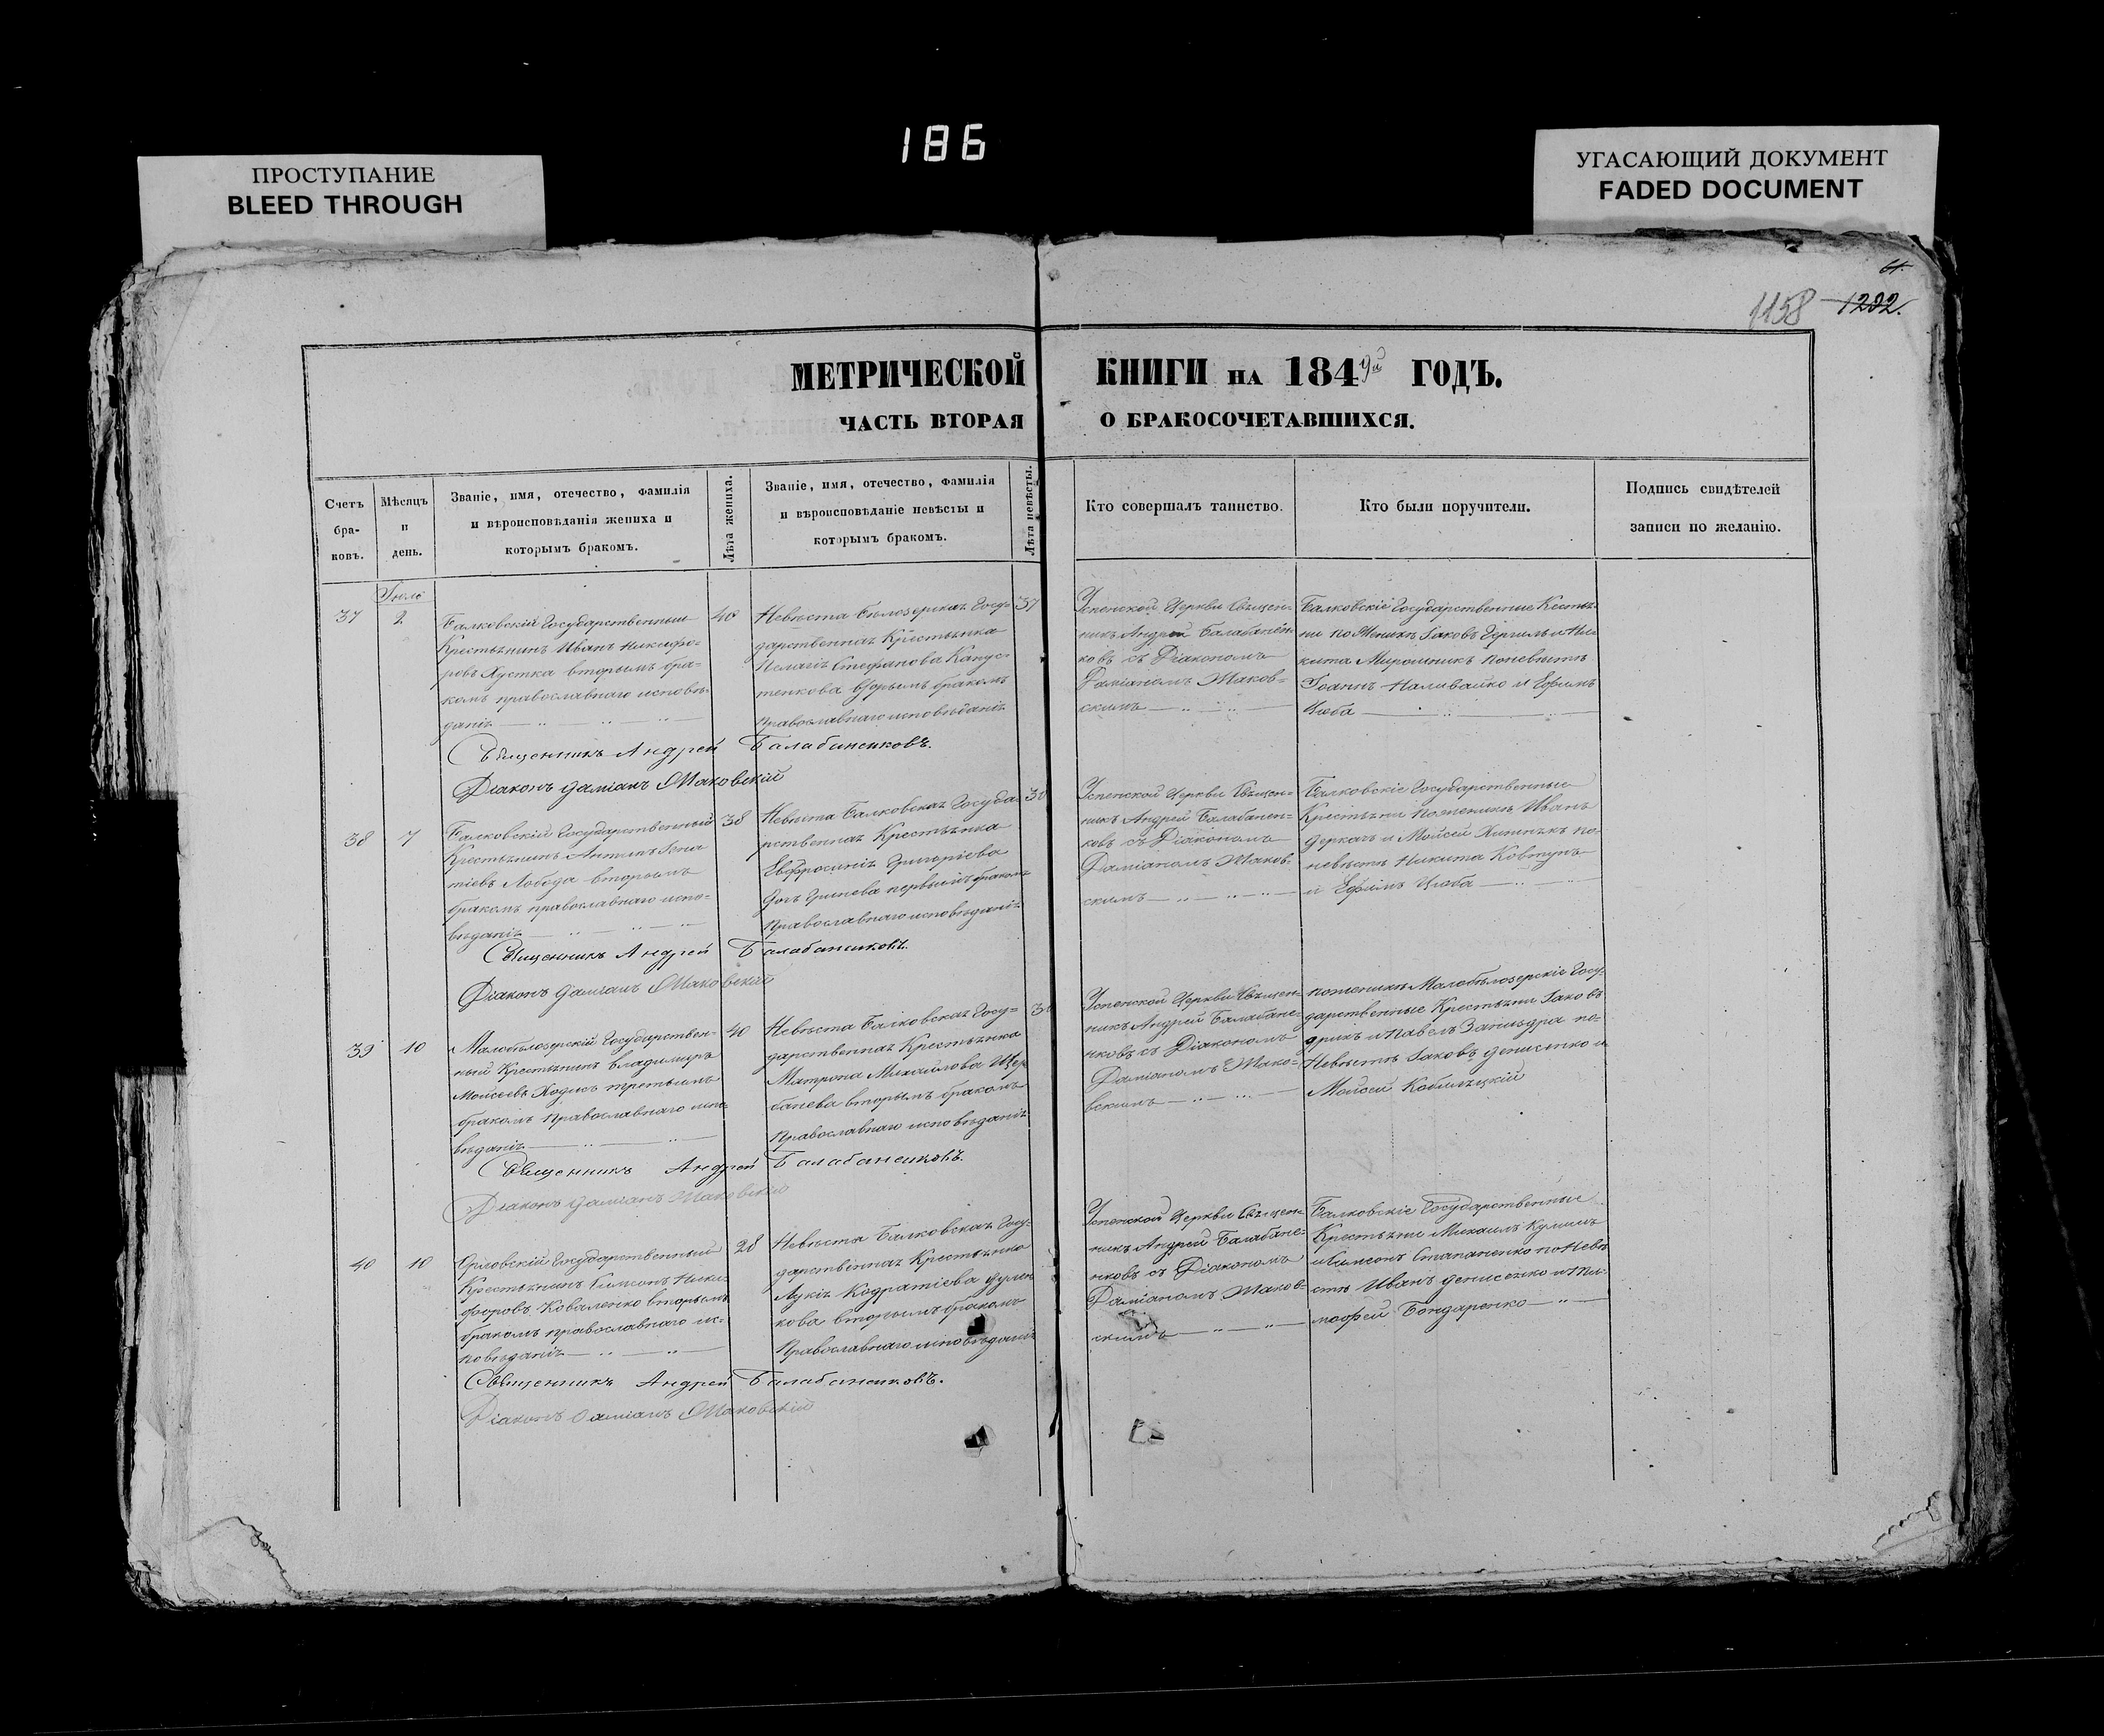 186
ПРОСТУПАНИЕ
BLEED THROUGH
УГАСАЮЩИЙ ДОКУМЕНТ
FADED DOCUMENT
1158 1202.
МЕТРИЧЕСКОЙ КНИГИ НА 1849й ГОДЪ.
ЧАСТЬ ВТОРАЯ О БРАКОСОЧЕТАВШИХСЯ.
Счетъ
бра-
ковъ.
Мѣсяцъ
и
день.
Званіе, имя, отечество, фамилія
и вѣроисповѣданія жениха и
которымъ бракомъ.
Лѣта жениха.
Званіе, имя, отечество, фамилія
и вѣроисповѣданіе невѣсты и
которымъ бракомъ.
Лѣта невѣсты.
Кто совершалъ таинство.
Кто были поручители.
Подпись свидѣтелей
записи по желанію.
Іюль
37
2
Балковскій Государственный
Крестьянинъ Иванъ Никифо-
ровъ Хустка вторымъ бра-
комъ православнаго исповѣ-
данія
40
Невѣста Бѣлозерская Госу-
дарственная Крестьянка
Пелагія Стефанова Капус-
тенкова вторымъ бракомъ
Православнаго исповѣданія
37
Успенской Церкви Священ-
никъ Андрей Балабанен-
ковъ съ Діакономъ
Даміаномъ Маков-
скимъ
Балковскіе Государственные
по Женихѣ Іаковъ и Ни-
кита Мирошникъ по невѣстѣ
Іоаннъ Наливайко и Ефимъ
Цюба
Священникъ Андрей Балабаненковъ.
Діаконъ Даміанъ Маковскій
38
7
Балковскій Государственный
Крестьянинъ Антипъ Игна
тіевъ Лобода вторымъ
бракомъ православнаго испо-
вѣданія
38
Невѣста Балковская Госуда-
рственная Крестьянка
Евфросинія Григоріева
дочь Гринева первымъ бракомъ
Православнаго исповѣданія
30
Успенской Церкви Священ-
никъ Андрей Балабанен-
ковъ съ Діакономъ
Даміаномъ Маков-
скимъ
Балковскіе Государственные
Крестьяни по женихѣ Иванъ
Деркачъ и Моисей по
невѣстѣ Никита Ковтунъ
и Ефимъ Цюба
Священникъ Андрей Балабаненковъ.
Діаконъ Даміанъ Маковскій
39
10
Малобѣлозерскій Государствен-
ный Крестьянинъ Владимиръ
Моисеевъ Ходисъ третьимъ
бракомъ Православнаго испо-
вѣданія
40
Невѣста Балковская Госу-
дарственная Крестьянка
Матрона Михайлова Щер
банева вторымъ бракомъ
Православнаго исповѣданія
Успенской Церкви Священ-
никъ Андрей Балабане-
нковъ съ Діакономъ
Даміаномъ Мако-
вскимъ
по женихѣ Малобѣлозерскіе Госу-
дарственные Крестьяни Іаковъ
и Павелъ по
Невѣстѣ Іаковъ Денисенко и
Моисей Кобыляцкій
Священникъ Андрей Балабаненковъ.
Діаконъ Даміанъ Маковскій
40
10
Орловскій Государственный
Крестьянинъ Симеонъ Ники-
форовъ Коваленко вторымъ
бракомъ православнаго ис-
повѣданія
28
Невѣста Балковская Госу-
дарственная Крестьянка
Лукія Кодратіева
кова вторымъ бракомъ
Православнаго исповѣданія
Успенской Церкви Священ
никъ Андрей Балабане-
нковъ съ Діакономъ
Даміаномъ Маков-
скимъ
Балковскіе Государственные
Крестьяни Михаилъ Кулишъ
и Симеонъ Степаненко по Невѣ
стѣ Иванъ Денисенко и Ти-
мофей Бондаренко
Священникъ Андрей Балабаненковъ.
Діаконъ Даміанъ Маковскій